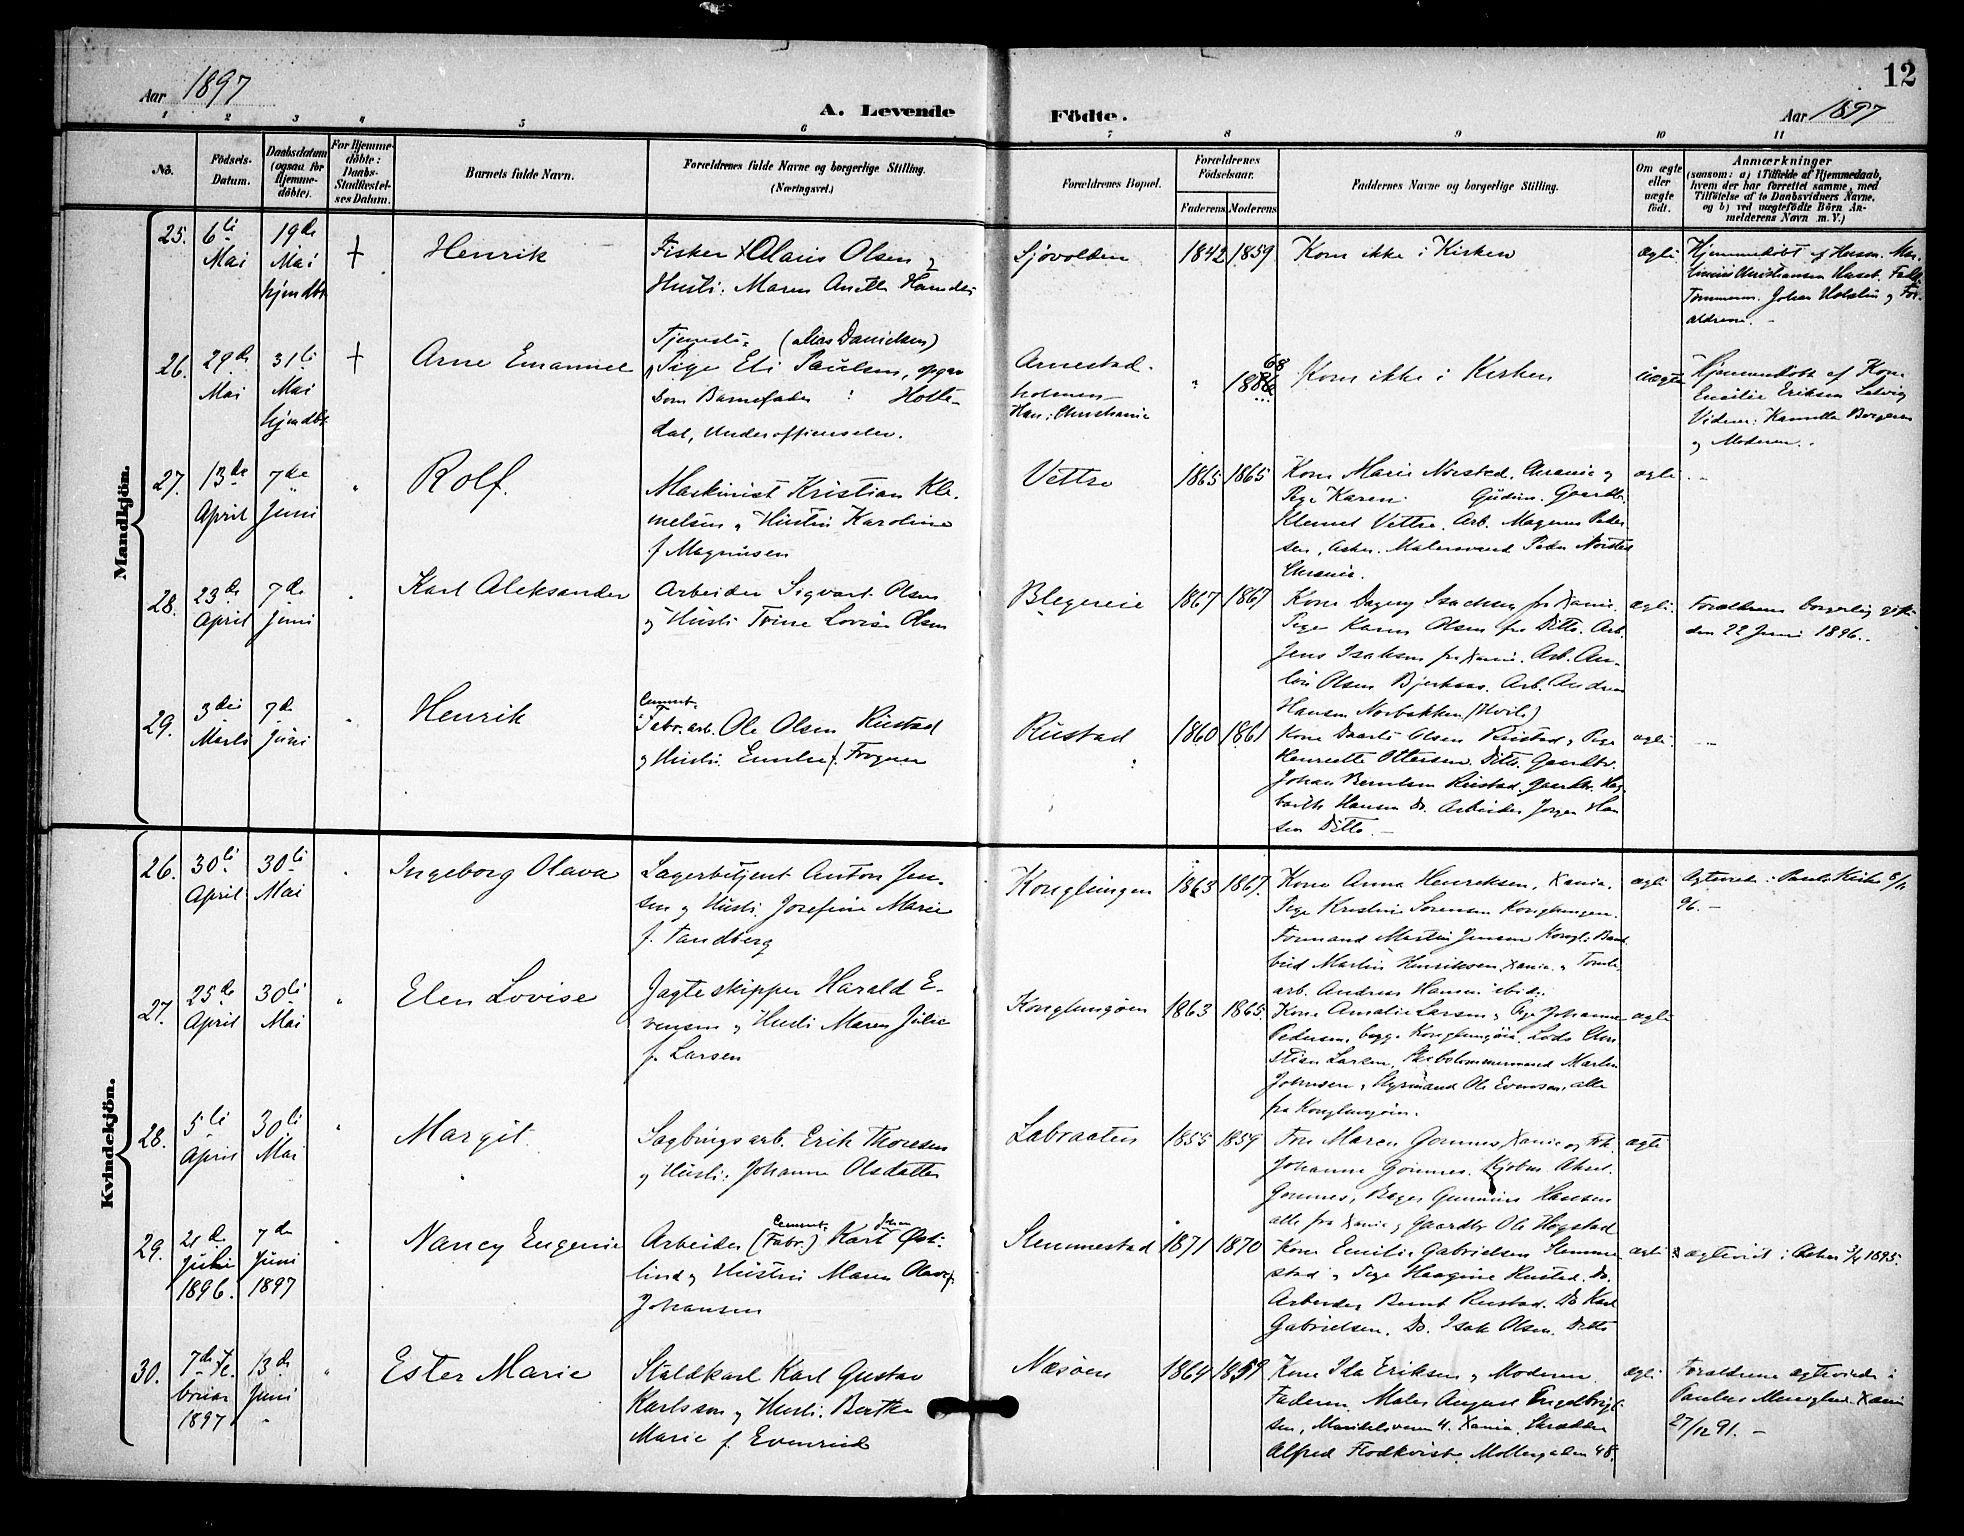 Aar 1897
A. Levende
Födte.
Aar 1897
12
1 2 3 4 5 6 7 8 9 10 11
No.
Födsels-
Datum.
Daabsdatum
(ogsaa for
Hjemme-
döbte).
For Hjemme-
döbte:
Daabs-
Stadfæstel-
ses Datum.
Barnets fulde Navn.
Forældrenes fulde Navne og borgerlige Stilling.
(Næringsvei.)
Forældrenes Bopæl.
Forældrenes
Födselsaar.
Faderens. Moderens.
Faddernes Navne og borgerlige Stilling.
Om ægte
eller
uægte
födt.
Anmærkninger
(saasom: a) i Tilfælde af Hjemmedaab,
hvem der har forrettet samme, med
Tilföielse af to Daabsvidners Navne,
og b) ved uægtefödte Börn An-
melderens Navn m. V.)
Mandkjön.
25.
6te
Mai
19de
Mai
hjmdbt
+
Henrik
Fisker Olaus Olsen &
Hustr. Maren Anette
Sjøvolden
1842
1859
Kom ikke i Kirken
ægte
Hjemmedøbt af
Tømmerm. Johan Holstin og For-
ældrene. -
26.
29de
Mai
31te
Mai
hjmdbt
+
Arne Emanuel
Tjeneste- (alias Danielsen)
Pige Eli Paulsen, opgav
som Barnefader : Holte-
dal, Underofficerselev.
Arnestad-
holmen
Han: Christiania
"
68
Kom ikke i Kirken
uægte
Hjemmedøbt af Kone
Emilie Eriksen
Vidner: Kamilla Borgersen
og Moderen.
27.
13de
April
7de
Juni
"
Rolf.
Maskinist Kristian Kle-
metsen & Hustru Karoline
f. Magnusen
Vettre
1865
1865
Kone Marie Norstad, &
Pige Karen Gudim. Gaardbr.
Klemet Vettre. Arb. Magnus Peder-
sen, Asker. Malersvend Peder Norstad
ægte
28.
23de
April
7de
Juni
"
Karl Aleksander
Arbeider Sigvart Olsen
og Hustr. Trine Lovise Olsen
Blegereie
1867
1867
Kone Dagny Isachsen fra Xania.
Pige Karen Olsen fra Ditto. Arb.
Jens Isaksen fra Xania. Arb. An-
ton Olsen Bjerkaas. Arb. Andreas
Hansen Norbakken (Hvils)
ægte
Forældrene borgerlig gift
den 22 Juni 1896.
29.
3die
Marts
7de
Juni
"
Henrik
Cement-
Fabr. arb. Ole Olsen Rustad
og Hustr. Emilie f. Frogner
Rustad
1860
1861
Kone Olsen Rustad & Pige
Henriette Ottersen Ditto. Gaardbr.
Johan Berntsen Rustad. Gaardbr. Hag-
barth Hansen Do. Arbeider Jørgen Han-
sen Ditto. -
ægte
Kvindekjön.
26.
30te
April
30te
Mai
"
Ingeborg Olava
Lagerbetjent Anton Jen-
sen og Hustr. Josefine Marie
f. Tandberg
Konglungen
1863
1867.
Kone Anna Henriksen, Xania.
Pige Kristine Sørensen Konglungen.
Formand Martin Jensen Kongl.
bud Martin Henriksen, Xania. & Tomte-
arb. Andreas Hansen ibid.
ægte
Ægteviede i Pauls Kirke
96. -
27.
25de
April
30te
Mai
"
Elen Lovise
Jagteskipper Harald E-
vensen & Hustr. Maren Julie
f. Larsen
Konglungøen
1863
1865.
Kone Amalie Larsen & Pige Johanne
Pedersen, begge Konglungøen. Lods Chri-
stian Larsen, Skibstømmermand Martin
Johnsen & Styrmand Ole Evensen, alle
fra Konglungøen.
ægte
28.
5te
April
30te
Mai
"
Margit.
Sagbrugsarb. Erik Thoresen
& Hustr. Johanne Olsdatter
Labraaten
1855
1859
Fru Maren Gommes, Xania og Frk.
Johanne Gommes. Kjøbm. Aksel
Gommes, Bager Gunerius Hansen
alle fra Xania & Gaardbr. Ole Høgstad
ægte
29.
21de
Juli
1896.
7de
Juni
1897
"
Nancy Eugenie
Cement- Johan
Arbeider (Fabr.) Karl Øst-
lind & Hustru Maren Olava f.
Johansen
Slemmestad
1871
1870
Kone Emilie Gabrielsen Slemme-
stad & Pige Haagine Rustad. Do.
Arbeider Bernt Rustad. Do Karl
Gabrielsen. Do. Isak Olsen. Ditto
ægte
ægteviet i Asker 1895.
30.
7de Fe-
bruar
1897
13de
Juni
"
Ester Marie
Staldkarl Karl Gustav
Karlsson & Hustr. Berthe
Marie f. Evenrud
Næsøen
1864
1859
Kone Ida Eriksen & Moderen.
Faderen. Maler August Engelbrigt-
sen, Maridalsveien 4. Xania. Skrædder
Alfred Flodkvist. Møllergaden 48.
ægte
Forældrene ægteviede i
Paulus Menighed Xania
27/12 91. -